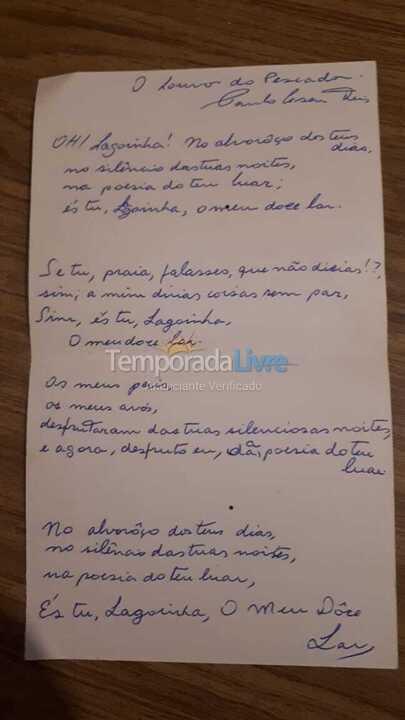 O Louvor do Pescador.
Paulo Cesar Reis
OH! Lagoinha! No alvorôço dos teus dias,
no silêncio das tuas noites,
na poesia do teu luar;
és tu, Lagoinha, o meu doce lar.
Se tu, praia, falasses, que não dirias!?,
sim; a mim dirias coisas sem par,
Sim, és tu, Lagoinha,
O meu doce lar.
TemporadaLivre
Anunciante Verificado
Os meus pais,
os meus avós,
desfrutaram das tuas silenciosas noites,
e agora, desfruto eu, da poesia do teu luar
No alvorôço dos teus dias,
no silêncio das tuas noites,
na poesia do teu luar,
És tu, Lagoinha, O Meu Dôce
Lar,